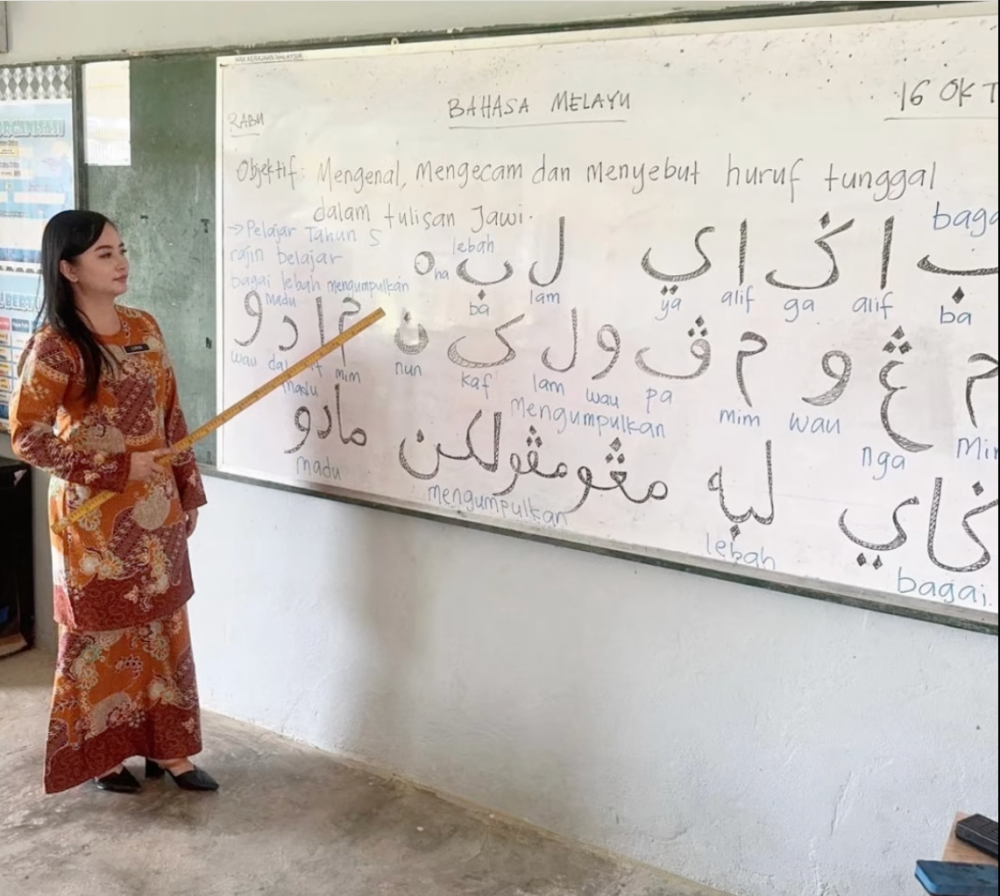 HAK KERAJAAN MALAYSIA
RABU BAHASA MELAYU 16 OKT
Objektif: Mengenal, Mengecam dan menyebut huruf tunggal
dalam tulisan Jawi.
→Pelajar Tahun 5
rajin belajar
bagai lebah mengumpulkan
Madu
baga
lebah
ب ا ڬ ا ي ل ب ه
ba alif ga alif ya lam ba ha
م ڠ و م ڤ و ل ک ن م ا د و
Mim nga wau mim pa wau lam kaf nun mim dal wau
mengumpulkan
madu
ڬاي لبه مڠومڤولکن مادو
bagai. lebah mengumpulkan madu